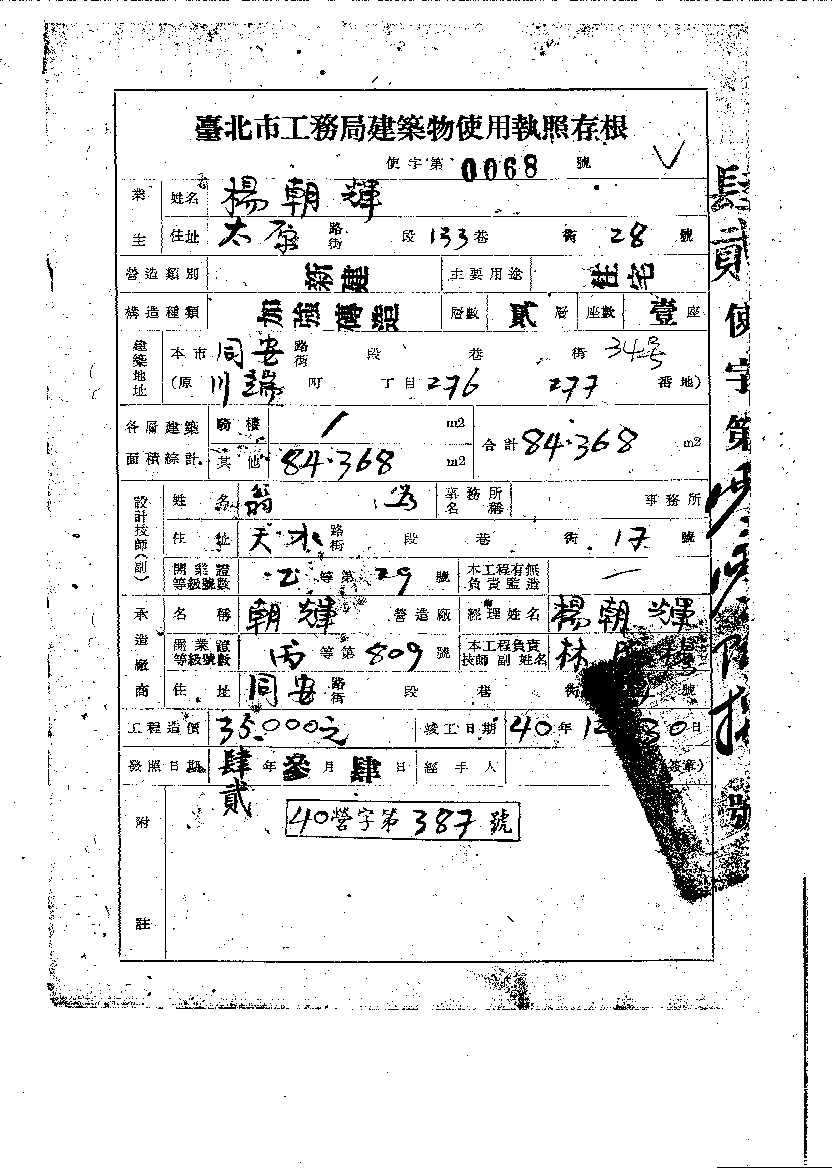 臺北市工務局建築物使用執照存根
使字第0068號
業主 姓名 楊朝輝
住址 太原路街 段 133巷 衖 28號
營造類別 新建 主要用途 住宅
構造種類 加強磚造 層數 貳層 座數 壹座
建築地址 本市 同安路街 段 巷 衖 34号
(原 川端町 丁目 276 277 番地)
各層建築面積綜計 騎樓 / m2
其他 84.368 m2 合計 84.368 m2
設計技師(副) 姓名 翁 事務所名稱 事務所
住址 天水路街 段 巷 衖 17號
開業證等級號數 乙等第29號 本工程有無負責監造 一
承造廠商 名稱 朝輝 營造廠 經理姓名 楊朝輝
開業證等級號數 丙等第809號 本工程負責技師副姓名 林
住址 同安路街 段 巷 衖 號
工程造價 35.000元 竣工日期 40年12 30日
發照日期 肆貳年參月肆日 經手人 簽章)
附註 40營字第387號
肆貳使字第 號